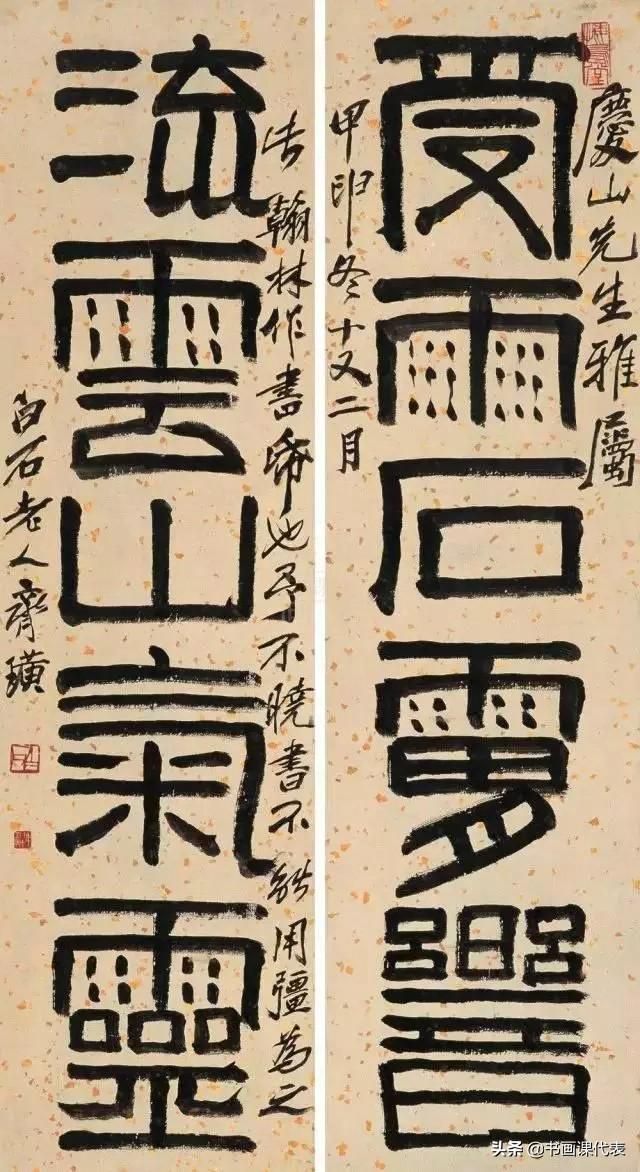 慶山先生雅屬
受雨石響
甲申冬十又二月
翰林作書也予不曉書不能用彊為之
流雲山氣靈
白石老人齊璜
头条 @书画课代表